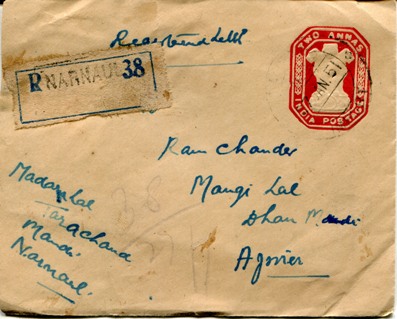 Registered Letter
R NARNAUL 38
TWO ANNAS
INDIA POSTAGE
N. 51
Ram Chander
Mangi Lal
Dhan Mandi
Ajmer
Madan Lal
Tarachand
Mandi
Narnaul.
38